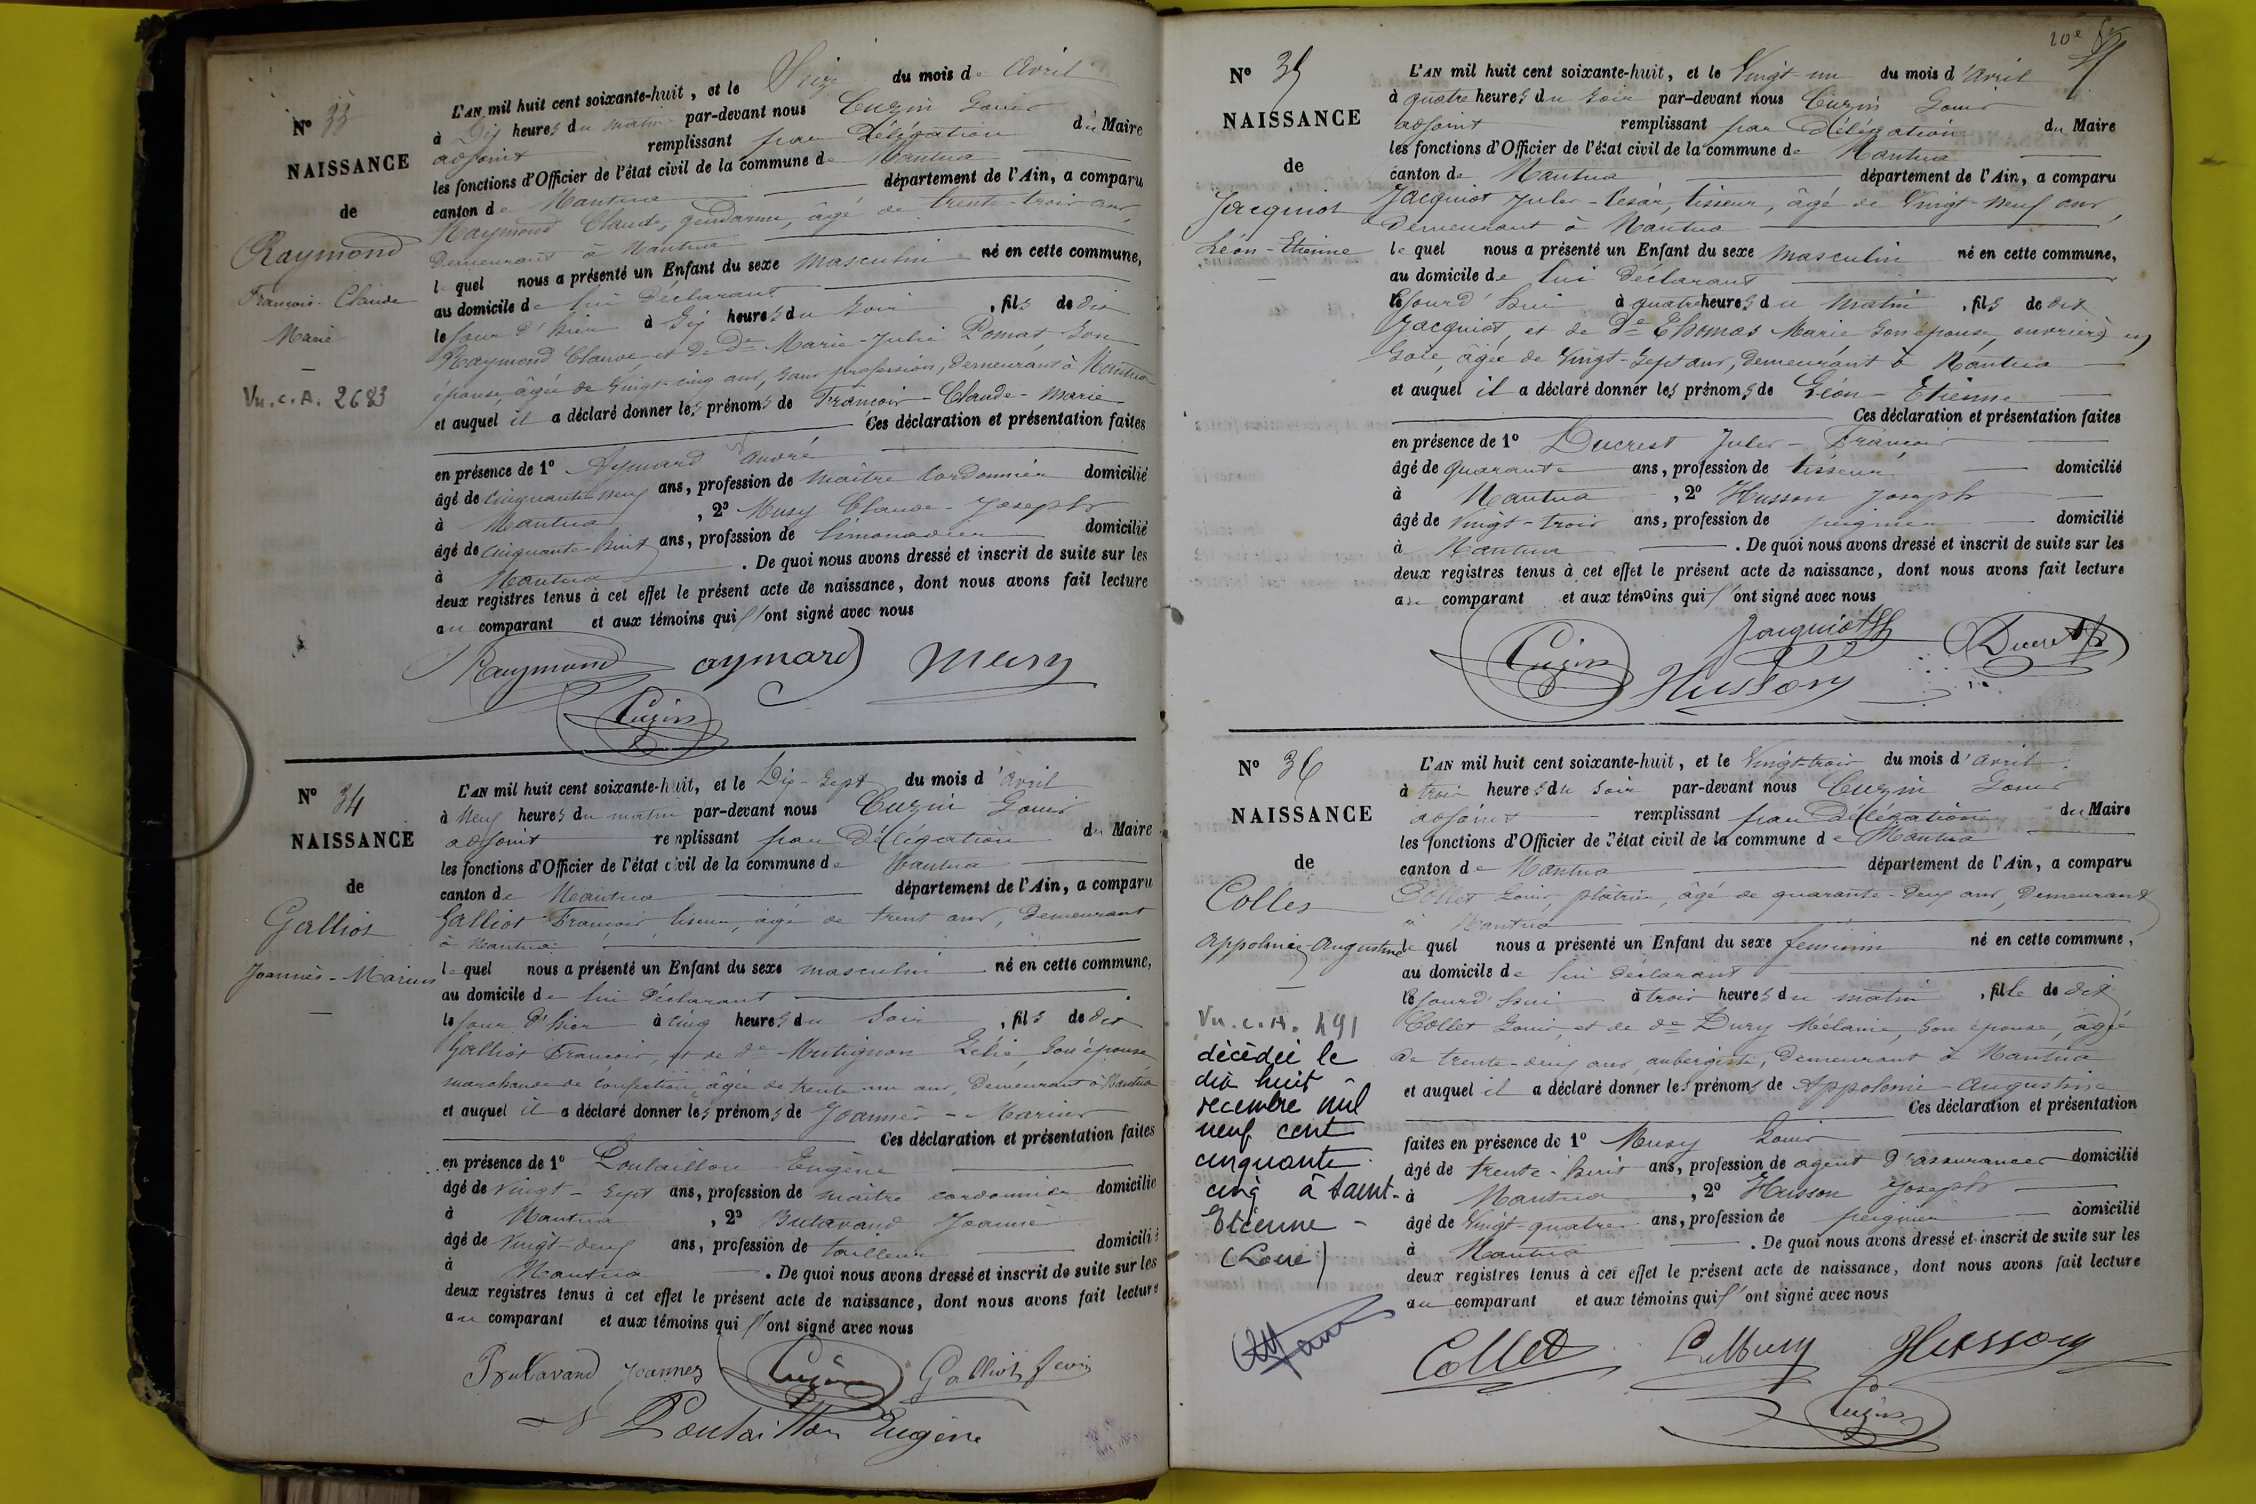 N° 33
NAISSANCE
de
Raymond
François-Claude
Marie
Vu. c. A. 2683
L'AN mil huit cent soixante-huit, et le Seize du mois de Avril
à Dix heures du matin par-devant nous Cuzin Louis
adjoint remplissant par délégation du Maire
les fonctions d'Officier de l'état civil de la commune de Nantua
canton de Nantua département de l'Ain, a comparu
Raymond Claude, gendarme, âgé de trente-trois ans,
demeurant à Nantua
le quel nous a présenté un Enfant du sexe masculin né en cette commune,
au domicile de lui déclarant
le jour d'hier à Six heures du soir, fils de dit
Raymond Claude et de De Marie-Julie Son
épouse, âgée de vingt-cinq ans, sans profession, demeurant à Nantua
et auquel il a déclaré donner les prénoms de François-Claude-Marie
Ces déclaration et présentation faites
en présence de 1° Aymard André
âgé de cinquante-neuf ans, profession de maître cordonnier domicilié
à Nantua, 2° Musy Claude-Joseph
âgé de cinquante-huit ans, profession de limonadier domicilié
à Nantua. De quoi nous avons dressé et inscrit de suite sur les
deux registres tenus à cet effet le présent acte de naissance, dont nous avons fait lecture
au comparant et aux témoins qui l'ont signé avec nous
Raymond aymard Musy
Cuzin
N° 34
NAISSANCE
de
Galliot
Joannès-Marius
L'AN mil huit cent soixante-huit, et le Dix-Sept du mois d'avril
à Neuf heures du matin par-devant nous Cuzin Louis
adjoint remplissant par Délégation du Maire
les fonctions d'Officier de l'état civil de la commune de Nantua
canton de Nantua département de l'Ain, a comparu
Galliot François, âgé de trent ans, demeurant
à Nantua
le quel nous a présenté un Enfant du sexe masculin né en cette commune,
au domicile de lui déclarant
le jour d'hier à cinq heures du soir, fils de dit
Galliot François, et de de Mutignon Zélie, Son épouse
marchande de confection, âgée de trente un ans, demeurant à Nantua
et auquel il a déclaré donner les prénoms de Joannès-Marius
Ces déclaration et présentation faites
en présence de 1° Poutaillon Eugène
âgé de vingt-sept ans, profession de maître cordonnier domicilié
à Nantua, 2° Butavand Joannès
âgé de vingt-deux ans, profession de tailleur domicilié
à Nantua. De quoi nous avons dressé et inscrit de suite sur les
deux registres tenus à cet effet le présent acte de naissance, dont nous avons fait lecture
au comparant et aux témoins qui l'ont signé avec nous
Butavand Joannes Cuzin Galliot
Poutaillon Eugène
N° 35
NAISSANCE
de
Jacquiot
Léon-Etienne
L'AN mil huit cent soixante-huit, et le Vingt-un du mois d'avril
à quatre heures du soir par-devant nous Cuzin Louis
adjoint remplissant par Délégation du Maire
les fonctions d'Officier de l'état civil de la commune de Nantua
canton de Nantua département de l'Ain, a comparu
Jacquiot Jules-César, tisseur, âgé de Vingt-neuf ans,
Demeurant à Nantua
le quel nous a présenté un Enfant du sexe masculin né en cette commune,
au domicile de lui déclarant
Cejourd'hui à quatre heures du matin, fils de dit
Jacquiot, et de De Thomas Marie son épouse, ouvrière en
Soie, âgée de Vingt-Sept ans, demeurant à Nantua
et auquel il a déclaré donner les prénoms de Léon-Etienne
Ces déclaration et présentation faites
en présence de 1° Ducrest Jules-François
âgé de quarante ans, profession de tisseur domicilié
à Nantua, 2° Husson Joseph
âgé de vingt-trois ans, profession de peigneur domicilié
à Nantua. De quoi nous avons dressé et inscrit de suite sur les
deux registres tenus à cet effet le présent acte de naissance, dont nous avons fait lecture
au comparant et aux témoins qui l'ont signé avec nous
Jacquiot Ducrest
Cuzin Husson
N° 36
NAISSANCE
de
Collet
Appolonie-Augustine
Vu. c. A. 491
décédée le
dix huit
décembre mil
neuf cent
cinquante
cinq à Saint-
Etienne -
(Loire)
L'AN mil huit cent soixante-huit, et le Vingt-trois du mois d'avril
à trois heures du soir par-devant nous Cuzin Louis
adjoint remplissant par Délégation du Maire
les fonctions d'Officier de l'état civil de la commune de Nantua
canton de Nantua département de l'Ain, a comparu
Collet Louis, plâtrier, âgé de quarante-deux ans, demeurant
à Nantua
le quel nous a présenté un Enfant du sexe féminin né en cette commune,
au domicile de lui déclarant
Cejourd'hui à trois heures du matin, fille de dit
Collet Louis, et de de Dury Mélanie, son épouse, âgée
de trente-deux ans, aubergiste, demeurant à Nantua
et auquel il a déclaré donner les prénoms de Appolonie-Augustine
Ces déclaration et présentation
faites en présence de 1° Musy Louis
âgé de trente-huit ans, profession de agent d'assurances domicilié
à Nantua, 2° Husson Joseph
âgé de Vingt-quatre ans, profession de peigneur domicilié
à Nantua. De quoi nous avons dressé et inscrit de suite sur les
deux registres tenus à cet effet le présent acte de naissance, dont nous avons fait lecture
au comparant et aux témoins qui l'ont signé avec nous
Collet Musy Husson
Cuzin